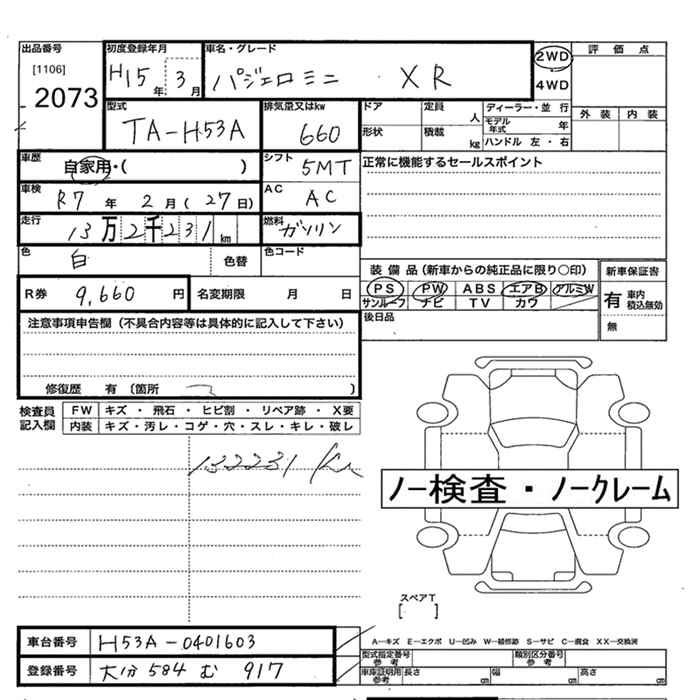 出品番号 初度登録年月 車名・グレード 2WD 評価点
[1106] H15年 3月 パジェロミニ XR 4WD
2073 型式 排気量又はkw ドア 定員 人 ディーラー・並行 外装 内装
TA-H53A 660 形状 積載 kg モデル年式 年
ハンドル 左・右
車歴 自家用・( ) シフト 5MT 正常に機能するセールスポイント
車検 R7年 2月(27日) AC AC
走行 13万2千231km 燃料 ガソリン
色 白 色替 色コード
装備品(新車からの純正品に限り〇印) 新車保証書
R券 9,660円 名変期限 月 日 PS PW ABS エアB アルミW 有 車内積込無効
サンルーフ ナビ TV カワ
後日品 無
注意事項申告欄(不具合内容等は具体的に記入して下さい)
修復歴 有〔箇所 )
検査員記入欄 FW キズ・飛石・ヒビ割・リペア跡・X要
内装 キズ・汚レ・コゲ・穴・スレ・キレ・破レ
132231 km
ノー検査・ノークレーム
スペアT
[ ]
車台番号 H53A-0401603 A―キズ E―エクボ U―凹み W―補修跡 S―サビ C―腐食 XX―交換済
型式指定番号 参考 類別区分番号 参考
登録番号 大分 584 む 917 車庫証明用 参考 長さ cm 幅 cm 高さ cm